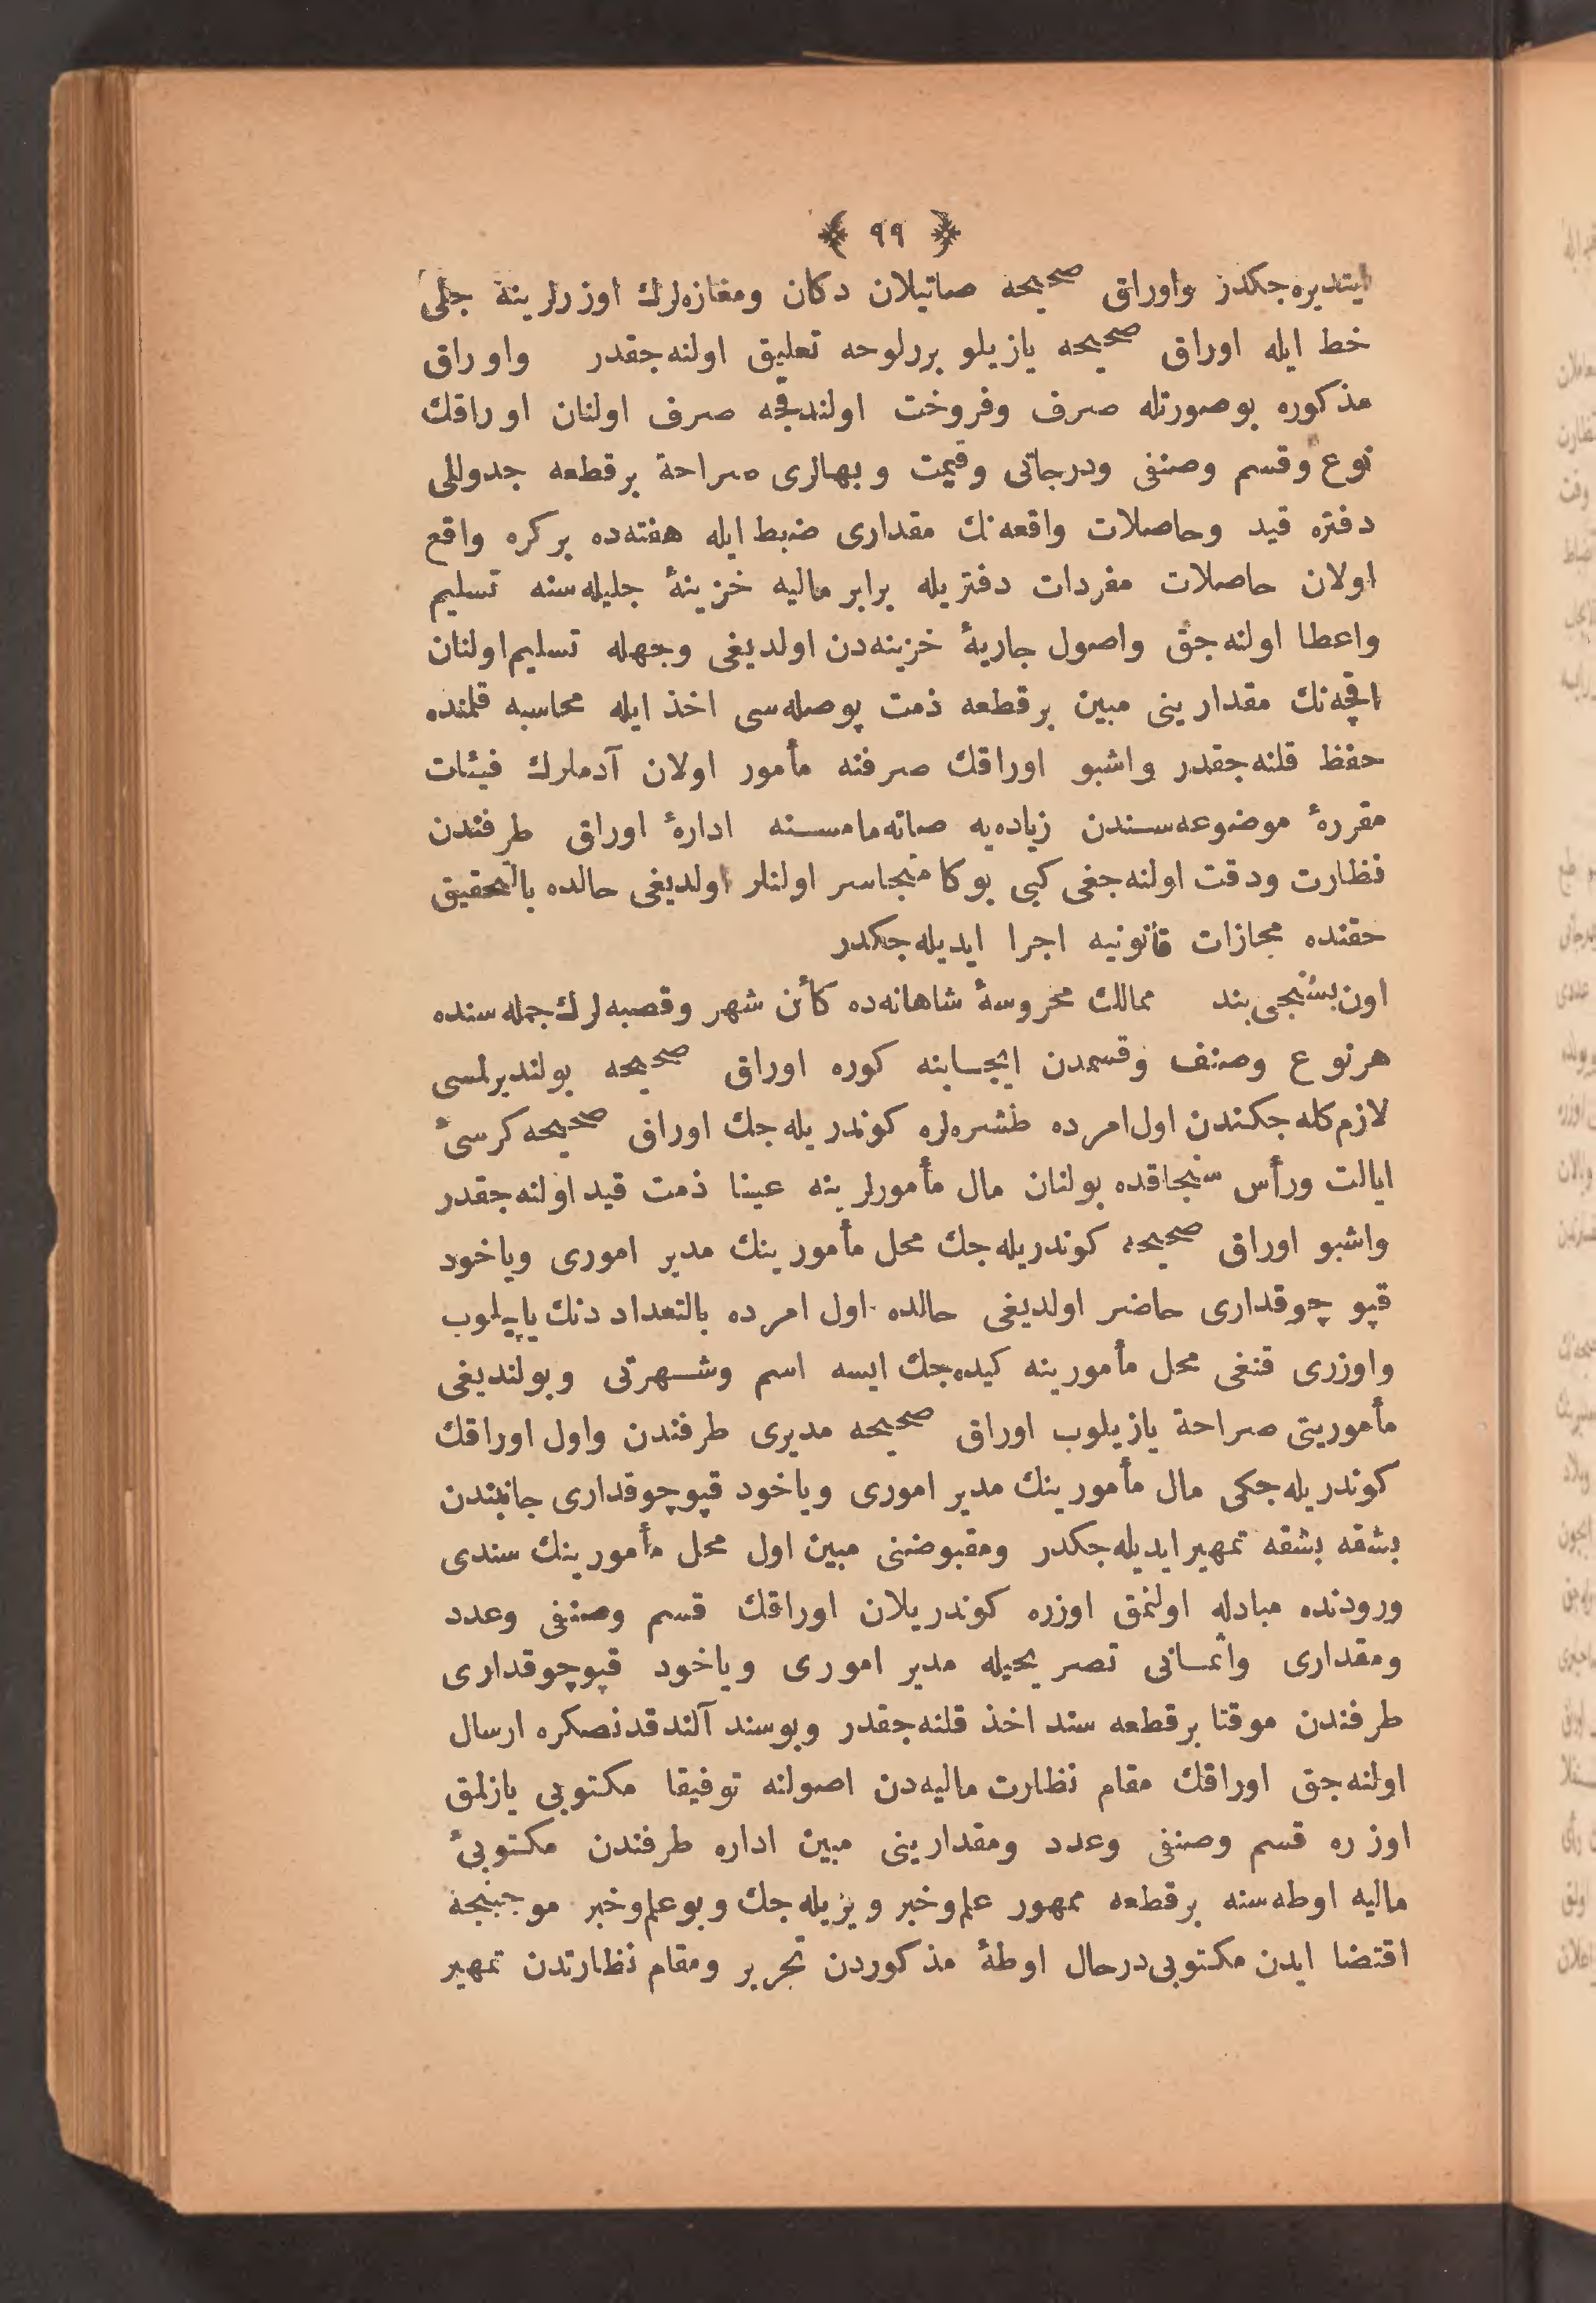 ﴿ ٩٩ ﴾
ایتدیره‌جکدر واوراق صحیحه صاتیلان دکان ومغازه‌لرك اوزرلرینه جلی
خط ایله اوراق صحیحه یازیلو بررلوحه تعلیق اولنه‌جقدر واوراق
مذکوره بوصورتله صرف وفروخت اولندقچه صرف اولنان اوراقك
نوع وقسم وصنفی ودرجاتی وقیمت وبهالری صراحة برقطعه جدوللی
دفتره قید وحاصلات واقعه‌نك مقداری ضبط ایله هفته‌ده برکره واقع
اولان حاصلات مفردات دفتریله برابر مالیه خزینهٔ جلیله‌سنه تسلیم
واعطا اولنه‌جق واصول جاریهٔ خزینه‌دن اولدیغی وجهله تسلیم اولنان
اقچه‌نك مقدارینی مبین برقطعه ذمت پوصله‌سی اخذ ایله محاسبه قلمنده
حفظ قلنه‌جقدر واشبو اوراقك صرفنه مأمور اولان آدملرك فیئات
مقررهٔ موضوعه‌سندن زیاده‌یه صاته‌مامسنه ادارهٔ اوراق طرفندن
نظارت ودقت اولنه‌جغی کبی بوکا متجاسر اولنلر اولدیغی حالده بالتحقیق
حقنده مجازات قانونیه اجرا ایدیله‌جکدر
اون بشنجی بند ممالك محروسهٔ شاهانه‌ده کائن شهر وقصبه‌لرك جمله‌سنده
هرنوع وصنف وقسمدن ایجابنه کوره اوراق صحیحه بولندیرلمسی
لازم کله‌جکندن اول امرده طشره‌لره کوندریله‌جك اوراق صحیحه کرسیٔ
ایالت ورأس سنجاقده بولنان مال مأمورلرینه عینا ذمت قید اولنه‌جقدر
واشبو اوراق صحیحه کوندریله‌جك محل مأمورینك مدیر اموری ویاخود
قپو چوقداری حاضر اولدیغی حالده اول امرده بالتعداد دنك یاپیلوب
واوزری قنغی محل مأمورینه کیده‌جك ایسه اسم وشهرتی وبولندیغی
مأموریتی صراحة یازیلوب اوراق صحیحه مدیری طرفندن واول اوراقك
کوندریله‌جکی مال مأمورینك مدیر اموری ویاخود قپوچوقداری جانبندن
بشقه بشقه تمهیر ایدیله‌جکدر ومقبوضنی مبین اول محل مأمورینك سندی
ورودنده مبادله اولنمق اوزره کوندریلان اوراقك قسم وصنفی وعدد
ومقداری واثمانی تصریحیله مدیر اموری ویاخود قپوچوقداری
طرفندن موقتا برقطعه سند اخذ قلنه‌جقدر وبوسند آلندقدنصکره ارسال
اولنه‌جق اوراقك مقام نظارت مالیه‌دن اصولنه توفیقا مکتوبی یازلمق
اوزره قسم وصنفی وعدد ومقدارینی مبین اداره طرفندن مکتوبیٔ
مالیه اوطه‌سنه برقطعه ممهور علم وخبر ویریله‌جك وبوعلم وخبر موجبنجه
اقتضا ایدن مکتوبی درحال اوطهٔ مذکوردن تحریر ومقام نظارتدن تمهیر